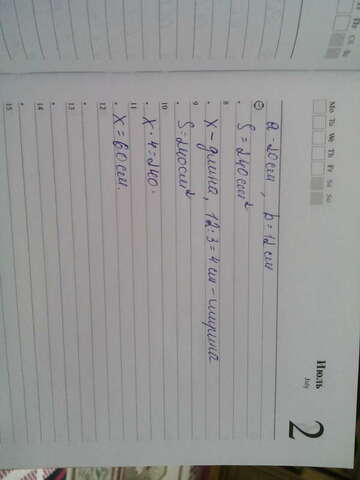 Июль
July
2
Mo Tu We Th Fr Sa Su
a - 20 см, b = 12 см
S = 240 см²
8
x - длина, 12:3 = 4 см - ширина
9
S = 240 см²
10
x · 4 = 240.
11
x = 60 см.
12
13
14
15